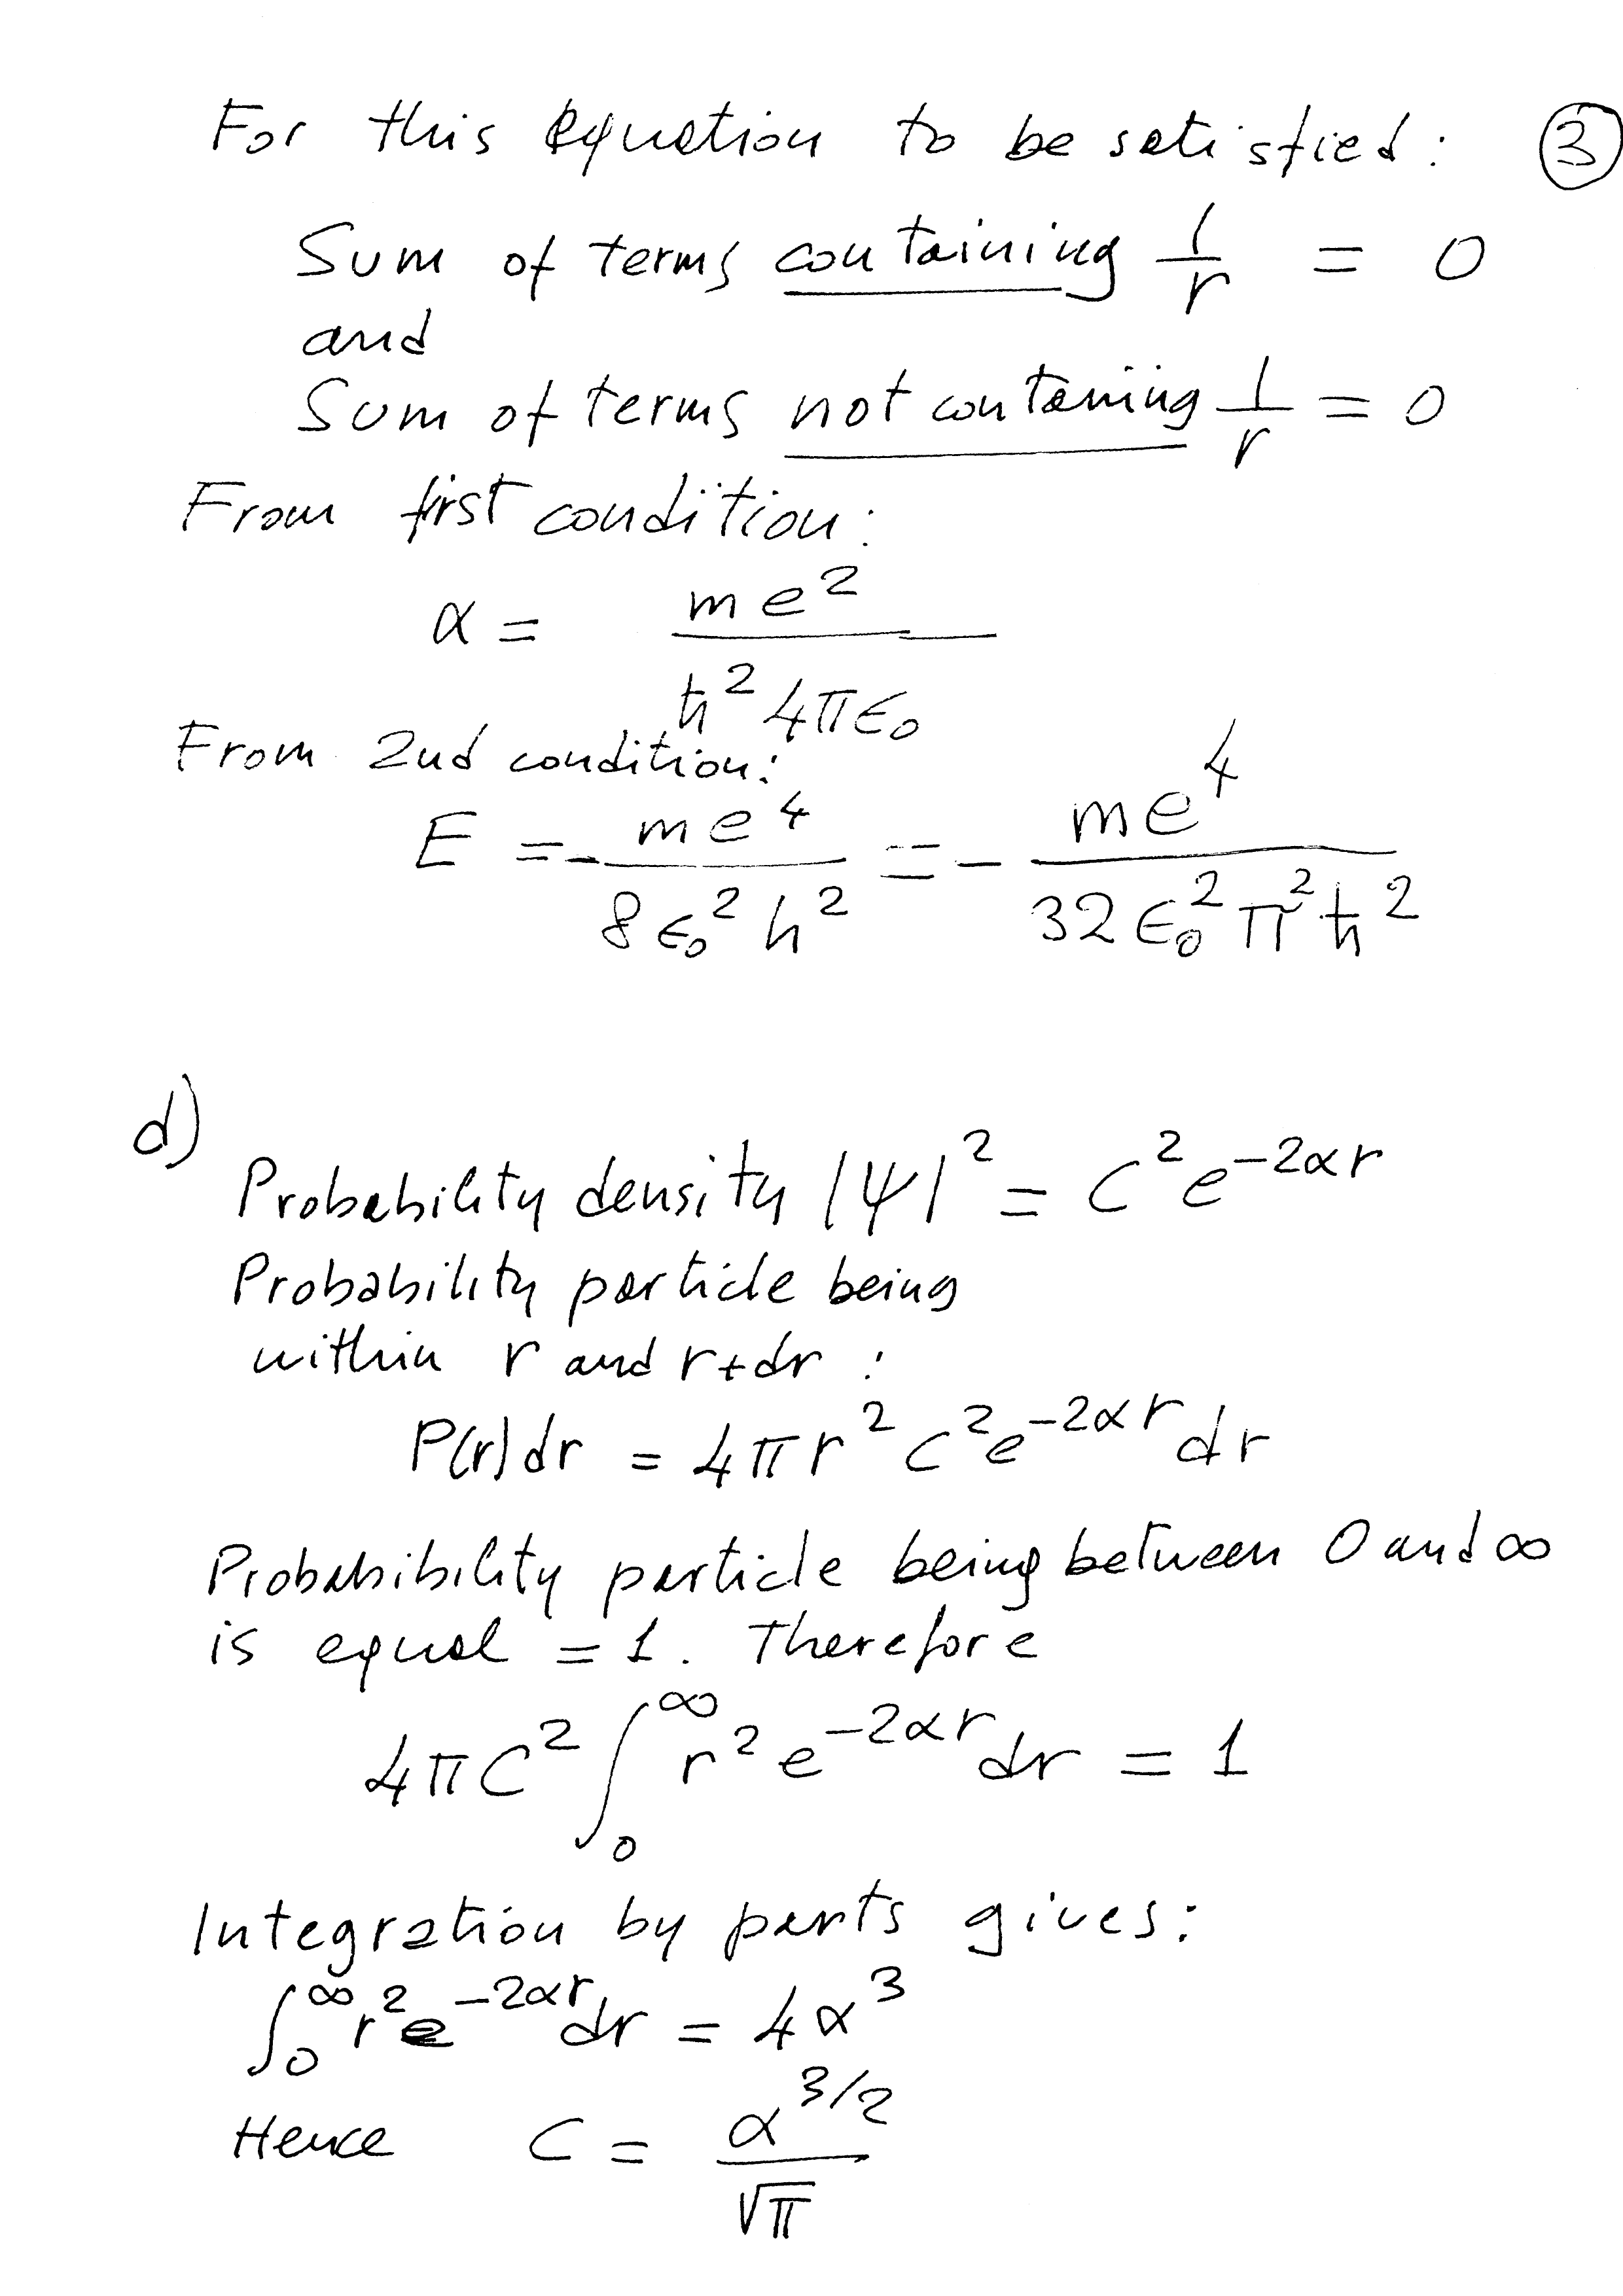 For this equation to be satisfied: ③
Sum of terms containing 1/r = 0
and
Sum of terms not contaning 1/r = 0
From first condition:
α = me²/(ħ² 4πε₀)
From 2nd condition:
E = - me⁴/(8ε₀² h²) = - me⁴/(32 ε₀² π² ħ²)
d)
Probability density |Ψ|² = C² e^(-2αr)
Probability particle being
within r and r+dr :
P(r)dr = 4πr² C² e^(-2αr) dr
Probabibility particle being between 0 and ∞
is equal = 1. Therefore
4πC² ∫₀^∞ r² e^(-2αr) dr = 1
Integration by parts gives:
∫₀^∞ r² e^(-2αr) dr = 4α³
Hence C = α^(3/2)/√π